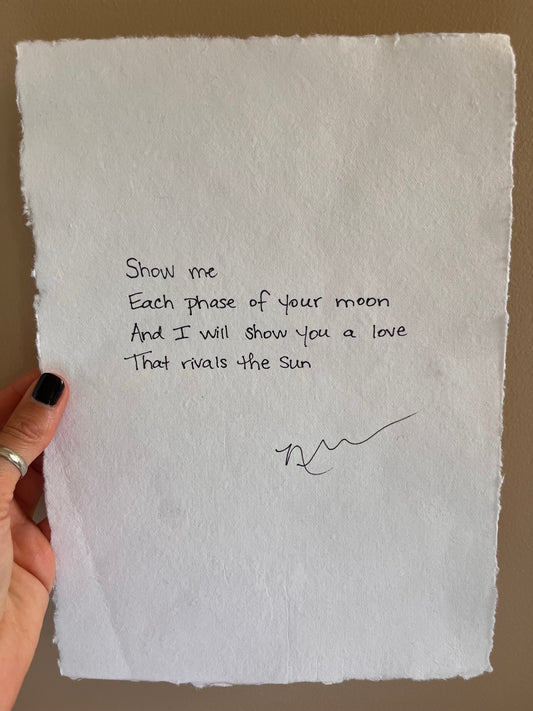 Show me
Each phase of your moon
And I will show you a love
That rivals the Sun